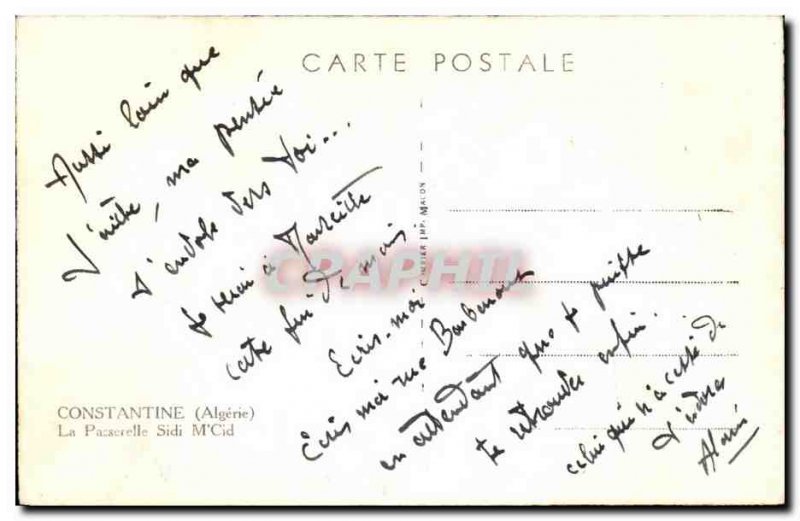 CARTE POSTALE
Aussi loin que
j'aille, ma pensée
s'envole vers toi...
Je serai à Marseille
cette fin de mois
Ecris-moi
Ecris moi rue
en attendant que je puisse
te retrouver enfin.
celui qui n'a cessé de
t'adorer
Alain
COMBIER IMP. MACON
CRAPHIL
CONSTANTINE (Algérie)
La Passerelle Sidi M'Cid